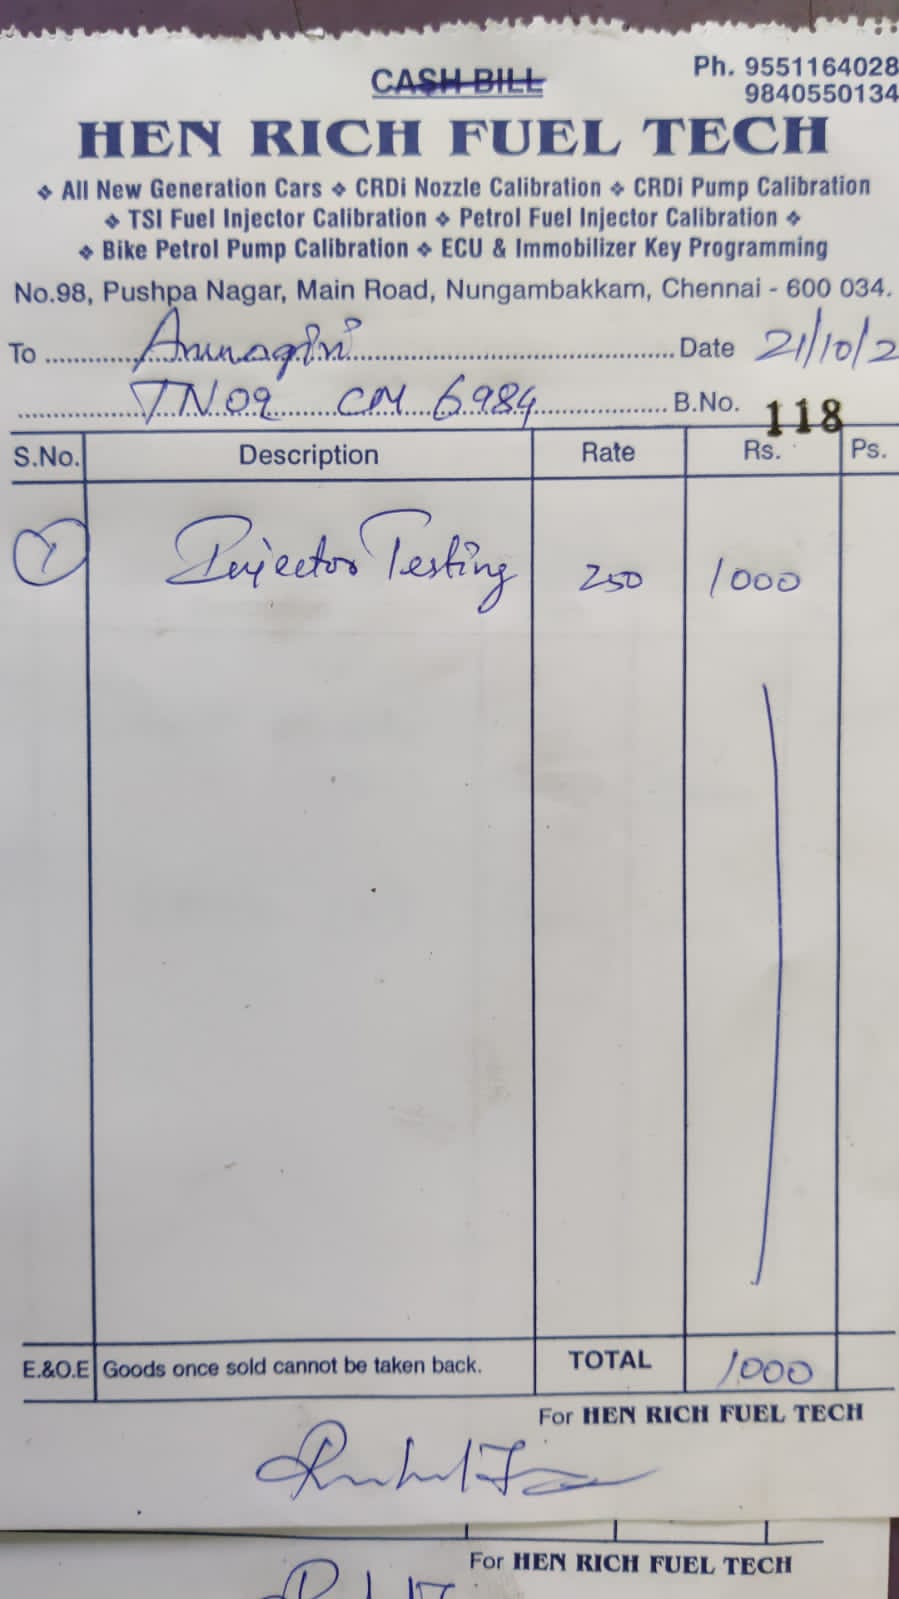 CASH BILL
Ph. 9551164028
9840550134
HEN RICH FUEL TECH
❖ All New Generation Cars ❖ CRDi Nozzle Calibration ❖ CRDi Pump Calibration
❖ TSI Fuel Injector Calibration ❖ Petrol Fuel Injector Calibration ❖
❖ Bike Petrol Pump Calibration ❖ ECU & Immobilizer Key Programming
No.98, Pushpa Nagar, Main Road, Nungambakkam, Chennai - 600 034.
To Date 21/10/2
TN02 CM 6984 B.No. 118
S.No. Description Rate Rs. Ps.
Injector Testing 250 1000
E.&O.E Goods once sold cannot be taken back. TOTAL 1000
For HEN RICH FUEL TECH
For HEN RICH FUEL TECH